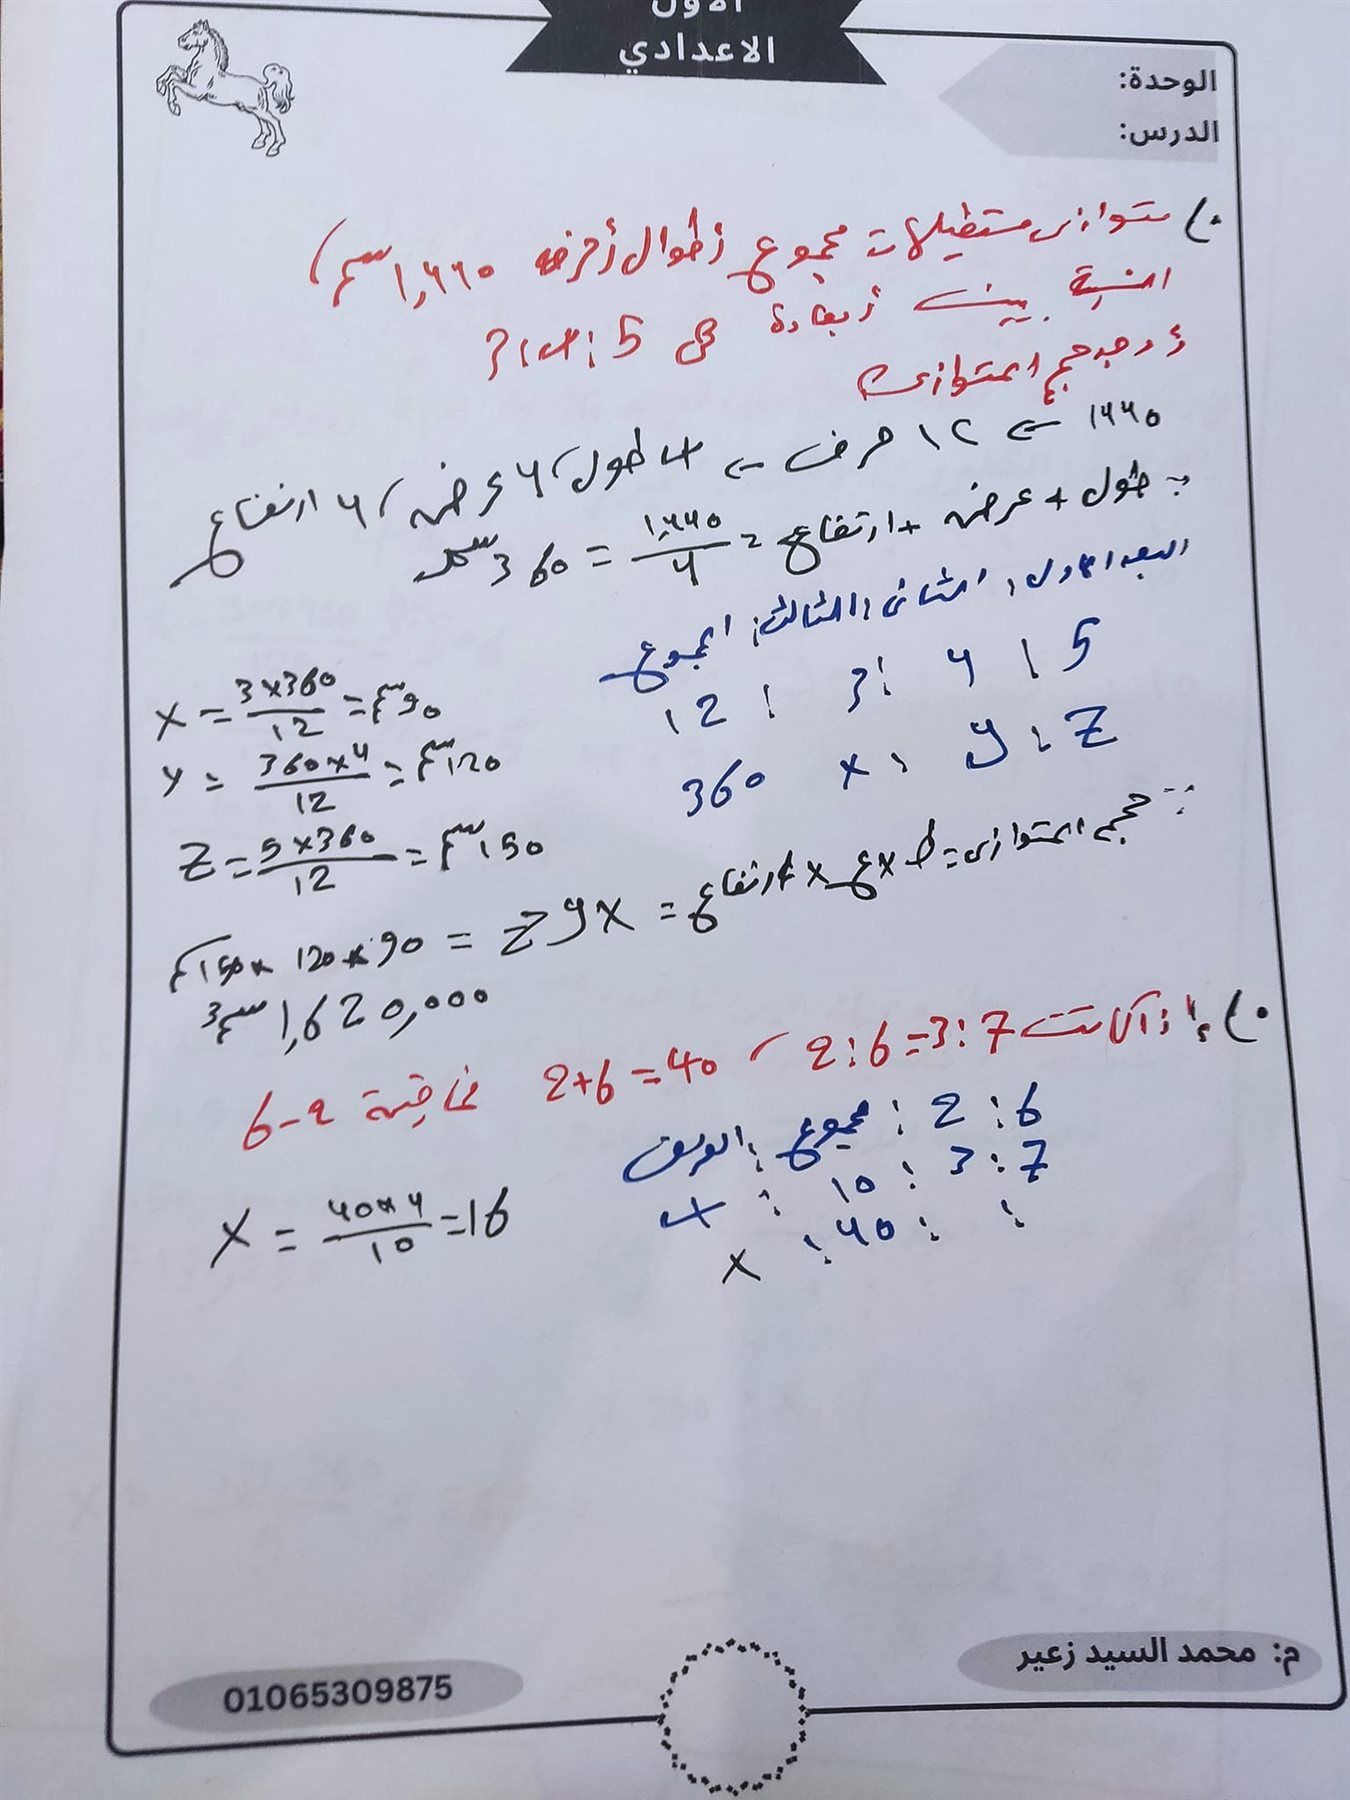 الأول
الاعدادي
الوحدة:
الدرس:
متوازى مستطيلات مجموع أطوال أحرفه 1,440 سم ،
النسبة بين أبعاده هى 5 : 4 : 3
أوجد حجم المتوازى
1440 ← 12 حرف ← 4 طول ، 4 عرض ، 4 ارتفاع
∴ طول + عرض + ارتفاع = 1,440 / 4 = 360 سم
البعد الاول : الثانى : الثالث : المجموع
5 : 4 : 3 : 12
Z : y : x 360
X = 3×360 / 12 = 90 سم
y = 360×4 / 12 = 120 سم
Z = 5×360 / 12 = 150 سم
∵ حجم المتوازى = ط × ع × ارتفاع = X y Z = 90 × 120 × 150
1,620,000 سم3
إذا كانت 2:6=3:7 ، 2+6=40 فما قيمة 6-2
6 : 2 : مجموع : الفرق
7 : 3 : 10 : 4
: : 40 : X
X = 40×4 / 10 = 16
م: محمد السيد زعير
01065309875